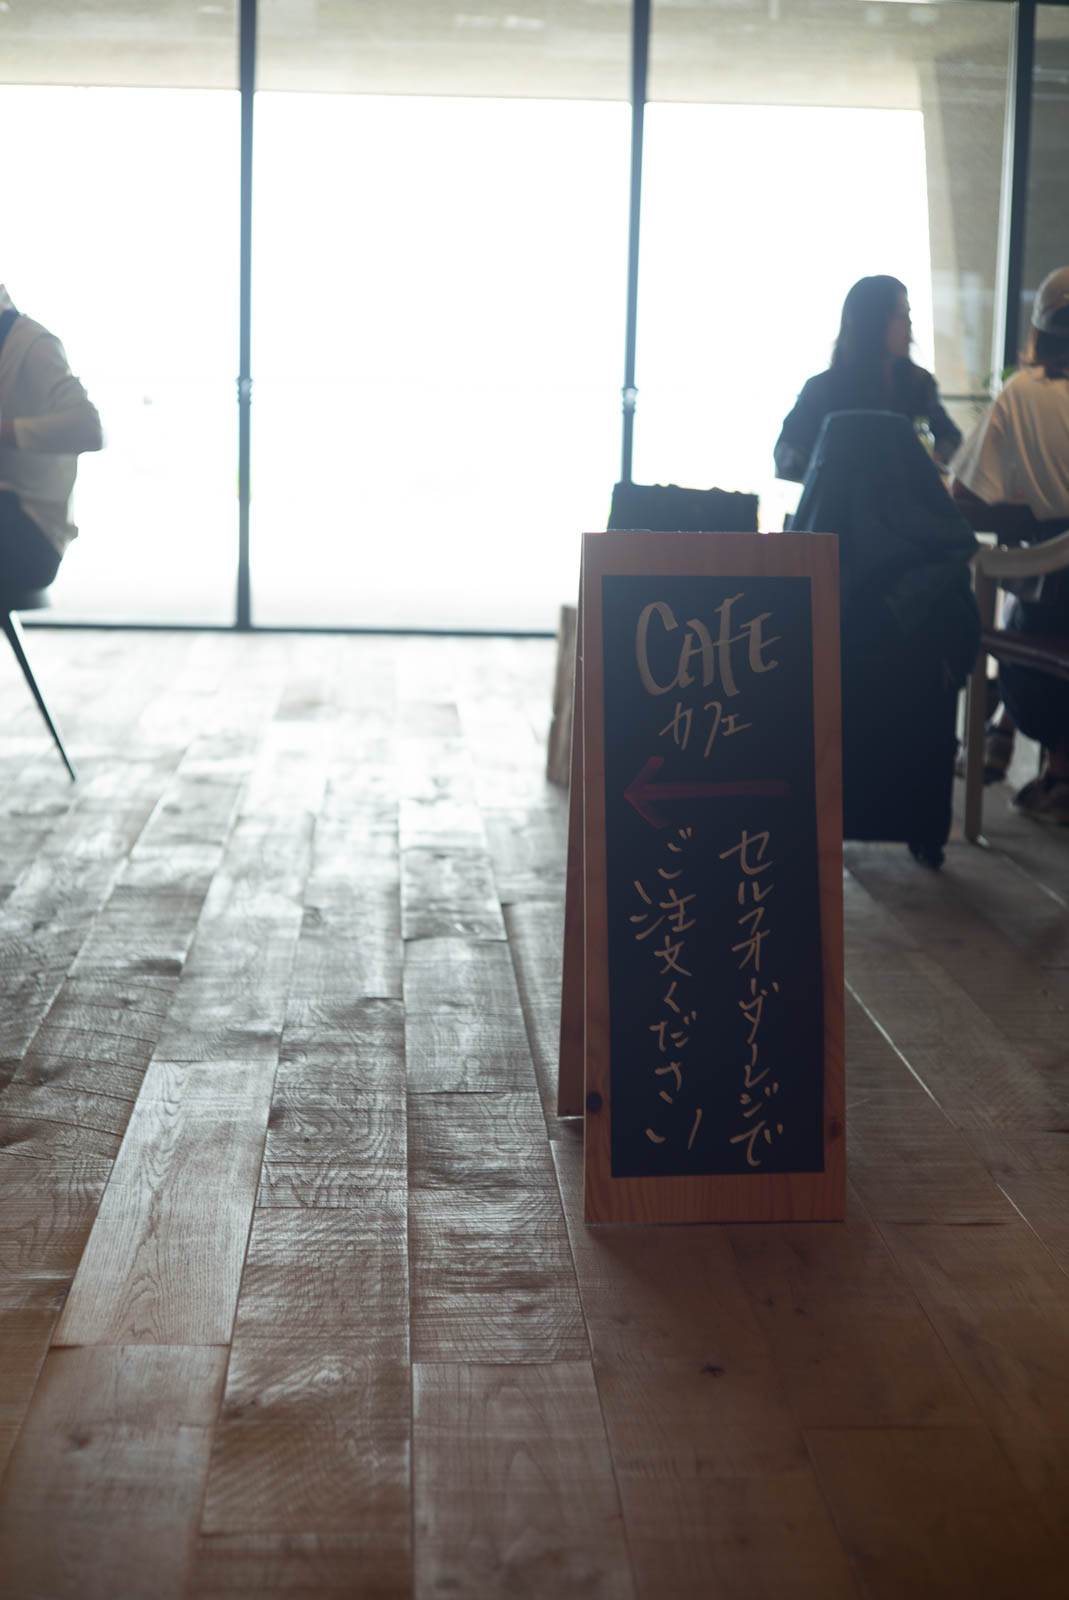 CAFE
カフェ
セルフオーダーレジで
ご注文ください